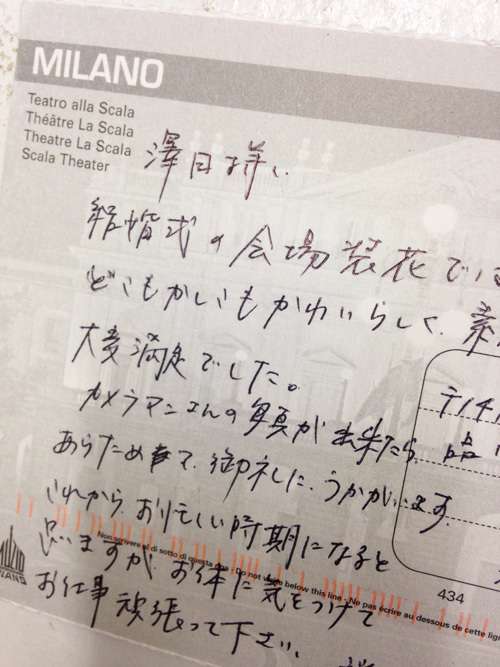 MILANO
Teatro alla Scala
Théâtre La Scala
Theatre La Scala
Scala Theater
澤田様、
結婚式の会場装花では
どれもかしもかわいらしく、素
大変満足でした。
カメラマンさんの写真が出来たら、
あらためまして、御礼に、うかがいます。
これから、お忙しい時期になると
思いますが、お体に気をつけて
お仕事頑張って下さい。
Non scrivere al di sotto di questa riga - Do not write below this line - Ne pas écrire au dessous de cette lign
434
MILANO